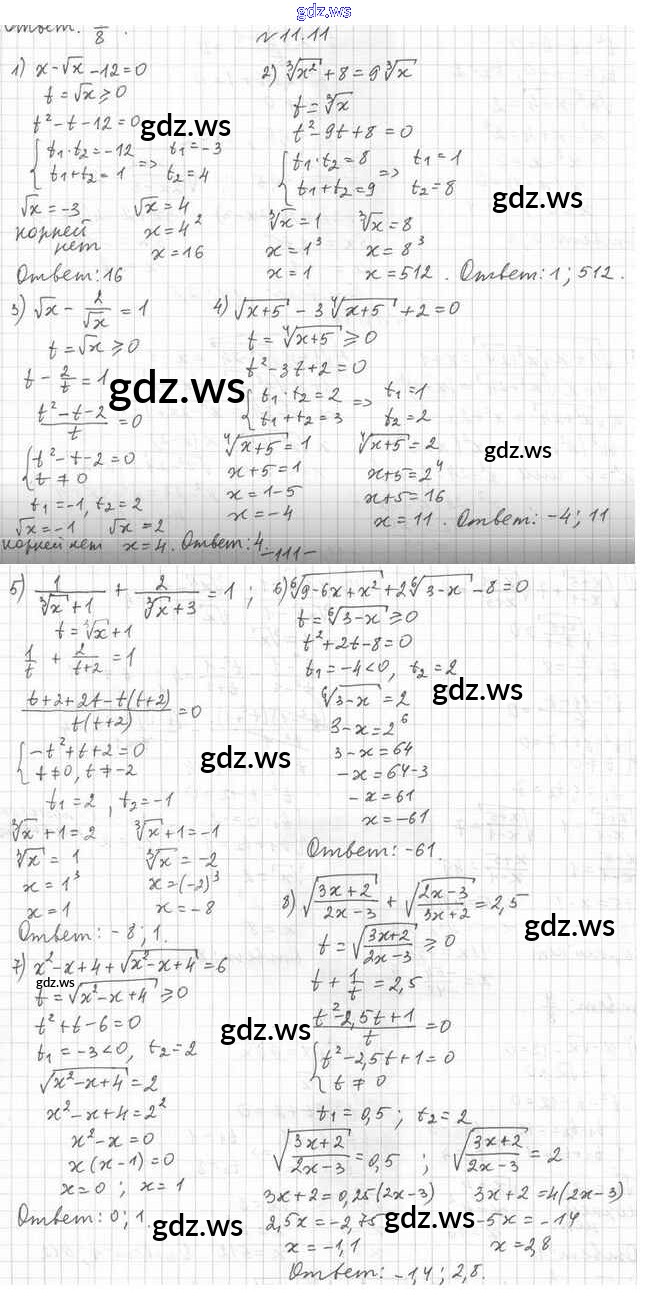 gdz.ws
Ответ: 7/8.
№ 11.11
1) x - √x - 12 = 0
t = √x ≥ 0
t² - t - 12 = 0
{ t₁·t₂ = -12
t₁ + t₂ = 1 => t₁ = -3
t₂ = 4
√x = -3 √x = 4
корней нет x = 4²
x = 16
Ответ: 16
2) ∛x² + 8 = 9∛x
t = ∛x
t² - 9t + 8 = 0
{ t₁·t₂ = 8
t₁ + t₂ = 9 => t₁ = 1
t₂ = 8
∛x = 1 ∛x = 8
x = 1³ x = 8³
x = 1 x = 512. Ответ: 1; 512.
3) √x - 2/√x = 1
t = √x ≥ 0
t - 2/t = 1
(t² - t - 2)/t = 0
{ t² - t - 2 = 0
t ≠ 0
t₁ = -1, t₂ = 2
√x = -1 √x = 2
корней нет x = 4. Ответ: 4.
4) √(x+5) - 3⁴√(x+5) + 2 = 0
t = ⁴√(x+5) ≥ 0
t² - 3t + 2 = 0
{ t₁·t₂ = 2
t₁ + t₂ = 3 => t₁ = 1
t₂ = 2
⁴√(x+5) = 1 ⁴√(x+5) = 2
x + 5 = 1 x + 5 = 2⁴
x = 1 - 5 x + 5 = 16
x = -4 x = 11. Ответ: -4; 11
-111-
5) 1/(∛x + 1) + 2/(∛x + 3) = 1;
t = ∛x + 1
1/t + 2/(t+2) = 1
(t + 2 + 2t - t(t+2))/(t(t+2)) = 0
{ -t² + t + 2 = 0
t ≠ 0, t ≠ -2
t₁ = 2, t₂ = -1
∛x + 1 = 2 ∛x + 1 = -1
∛x = 1 ∛x = -2
x = 1³ x = (-2)³
x = 1 x = -8
Ответ: -8; 1.
6) ⁶√(9 - 6x + x²) + 2⁶√(3 - x) - 8 = 0
t = ⁶√(3 - x) ≥ 0
t² + 2t - 8 = 0
t₁ = -4 < 0, t₂ = 2
⁶√(3 - x) = 2
3 - x = 2⁶
3 - x = 64
-x = 64 - 3
-x = 61
x = -61
Ответ: -61.
7) x² - x + 4 + √(x² - x + 4) = 6
t = √(x² - x + 4) ≥ 0
t² + t - 6 = 0
t₁ = -3 < 0, t₂ = 2
√(x² - x + 4) = 2
x² - x + 4 = 2²
x² - x = 0
x(x - 1) = 0
x = 0; x = 1
Ответ: 0; 1.
8) √((3x+2)/(2x-3)) + √((2x-3)/(3x+2)) = 2,5
t = √((3x+2)/(2x-3)) ≥ 0
t + 1/t = 2,5
(t² - 2,5t + 1)/t = 0
{ t² - 2,5t + 1 = 0
t ≠ 0
t₁ = 0,5; t₂ = 2
√((3x+2)/(2x-3)) = 0,5; √((3x+2)/(2x-3)) = 2
3x + 2 = 0,25(2x - 3) 3x + 2 = 4(2x - 3)
2,5x = -2,75 -5x = -14
x = -1,1 x = 2,8
Ответ: -1,4; 2,8.
gdz.ws
gdz.ws
gdz.ws
gdz.ws
gdz.ws
gdz.ws
gdz.ws
gdz.ws
gdz.ws
gdz.ws
gdz.ws